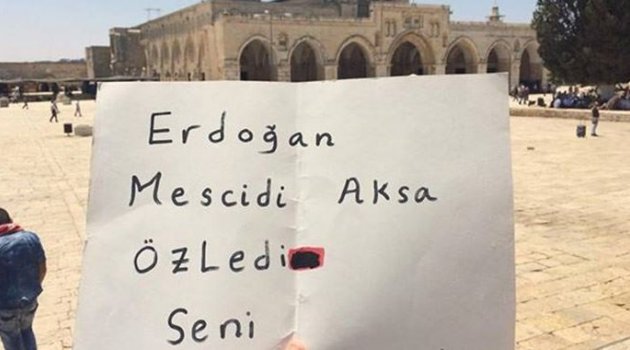 Erdoğan
Mescidi Aksa
ÖZLedi
Seni